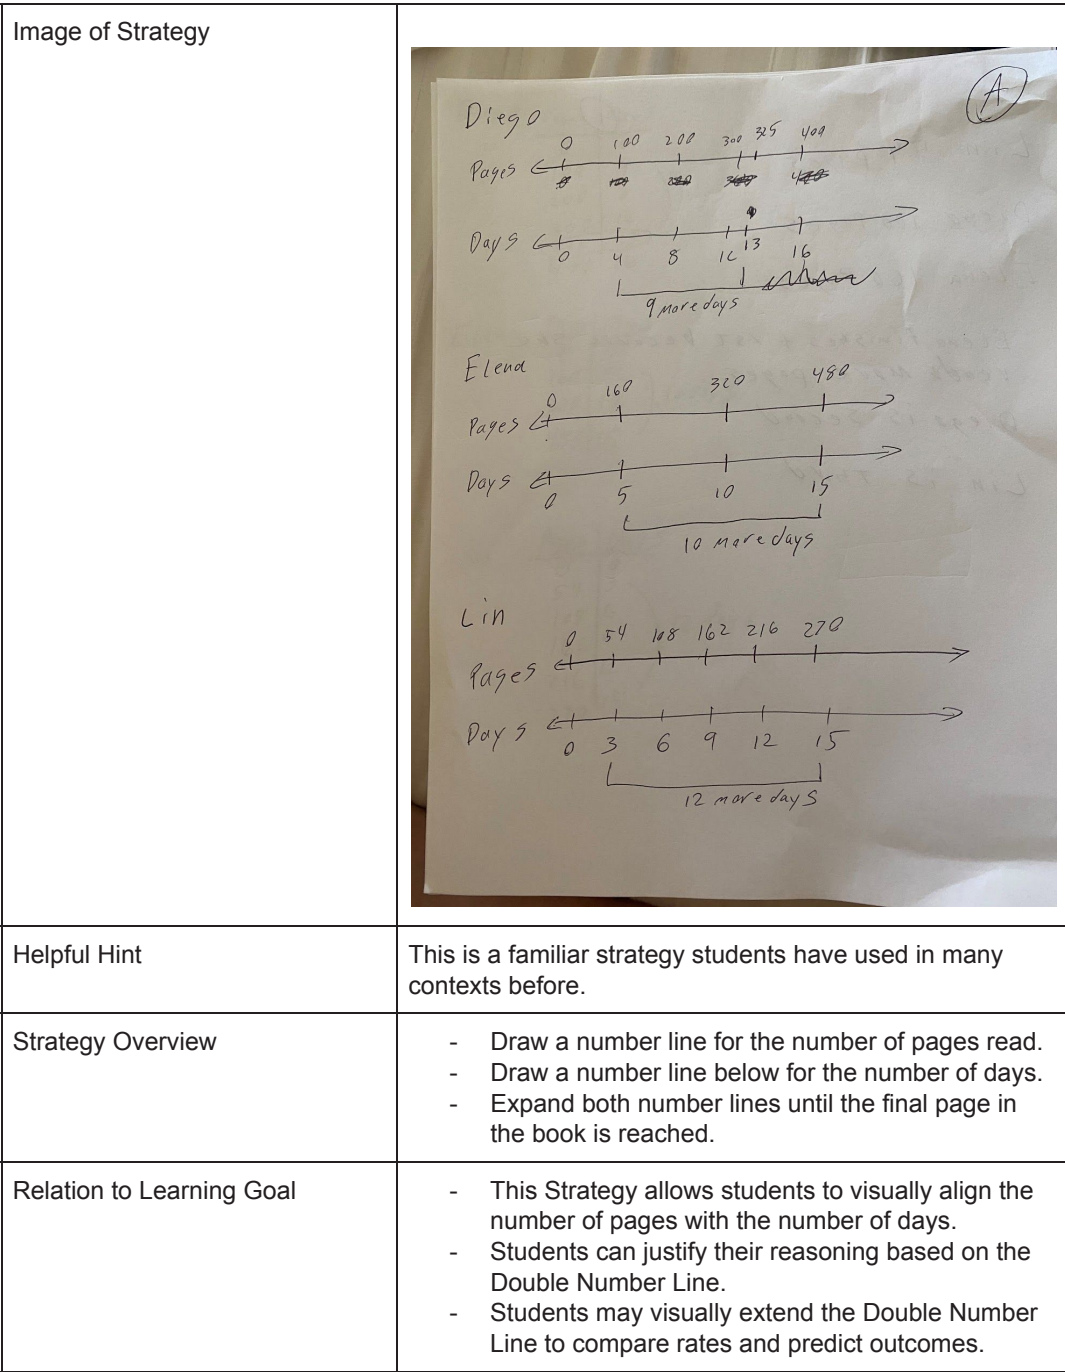 Image of Strategy
A
Diego
0 100 200 300 325 400
Pages
Days
0 4 8 12 13 16
9 more days
Elena
0 160 320 480
Pages
Days
0 5 10 15
10 more days
Lin
0 54 108 162 216 270
Pages
Days
0 3 6 9 12 15
12 more days
Helpful Hint
This is a familiar strategy students have used in many
contexts before.
Strategy Overview
- Draw a number line for the number of pages read.
- Draw a number line below for the number of days.
- Expand both number lines until the final page in
the book is reached.
Relation to Learning Goal
- This Strategy allows students to visually align the
number of pages with the number of days.
- Students can justify their reasoning based on the
Double Number Line.
- Students may visually extend the Double Number
Line to compare rates and predict outcomes.